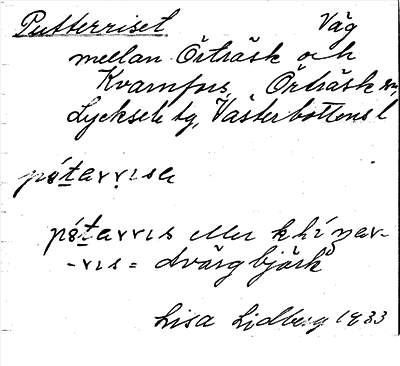 Putterriset Väg
mellan Örträsk och
Kvarnfors, Örträsk sn,
Lycksele tg, Västerbottens l
pó̱tarrısa
pó̱tarrıs eller khı́nar-
-rıs = dvärgbjörk
Lisa Lidberg 1933